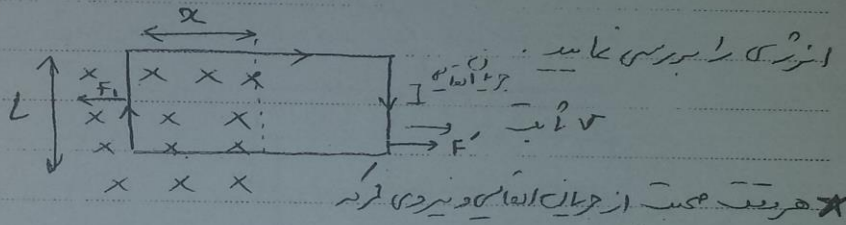 x
انرژی را بررسی نمایید.
جریان القایی
I
L
F₁
v ثابت
F'
× × × ×
× × ×
× × ×
× × ×
* هر وقت صحبت از جریان القایی و نیروی محرکه